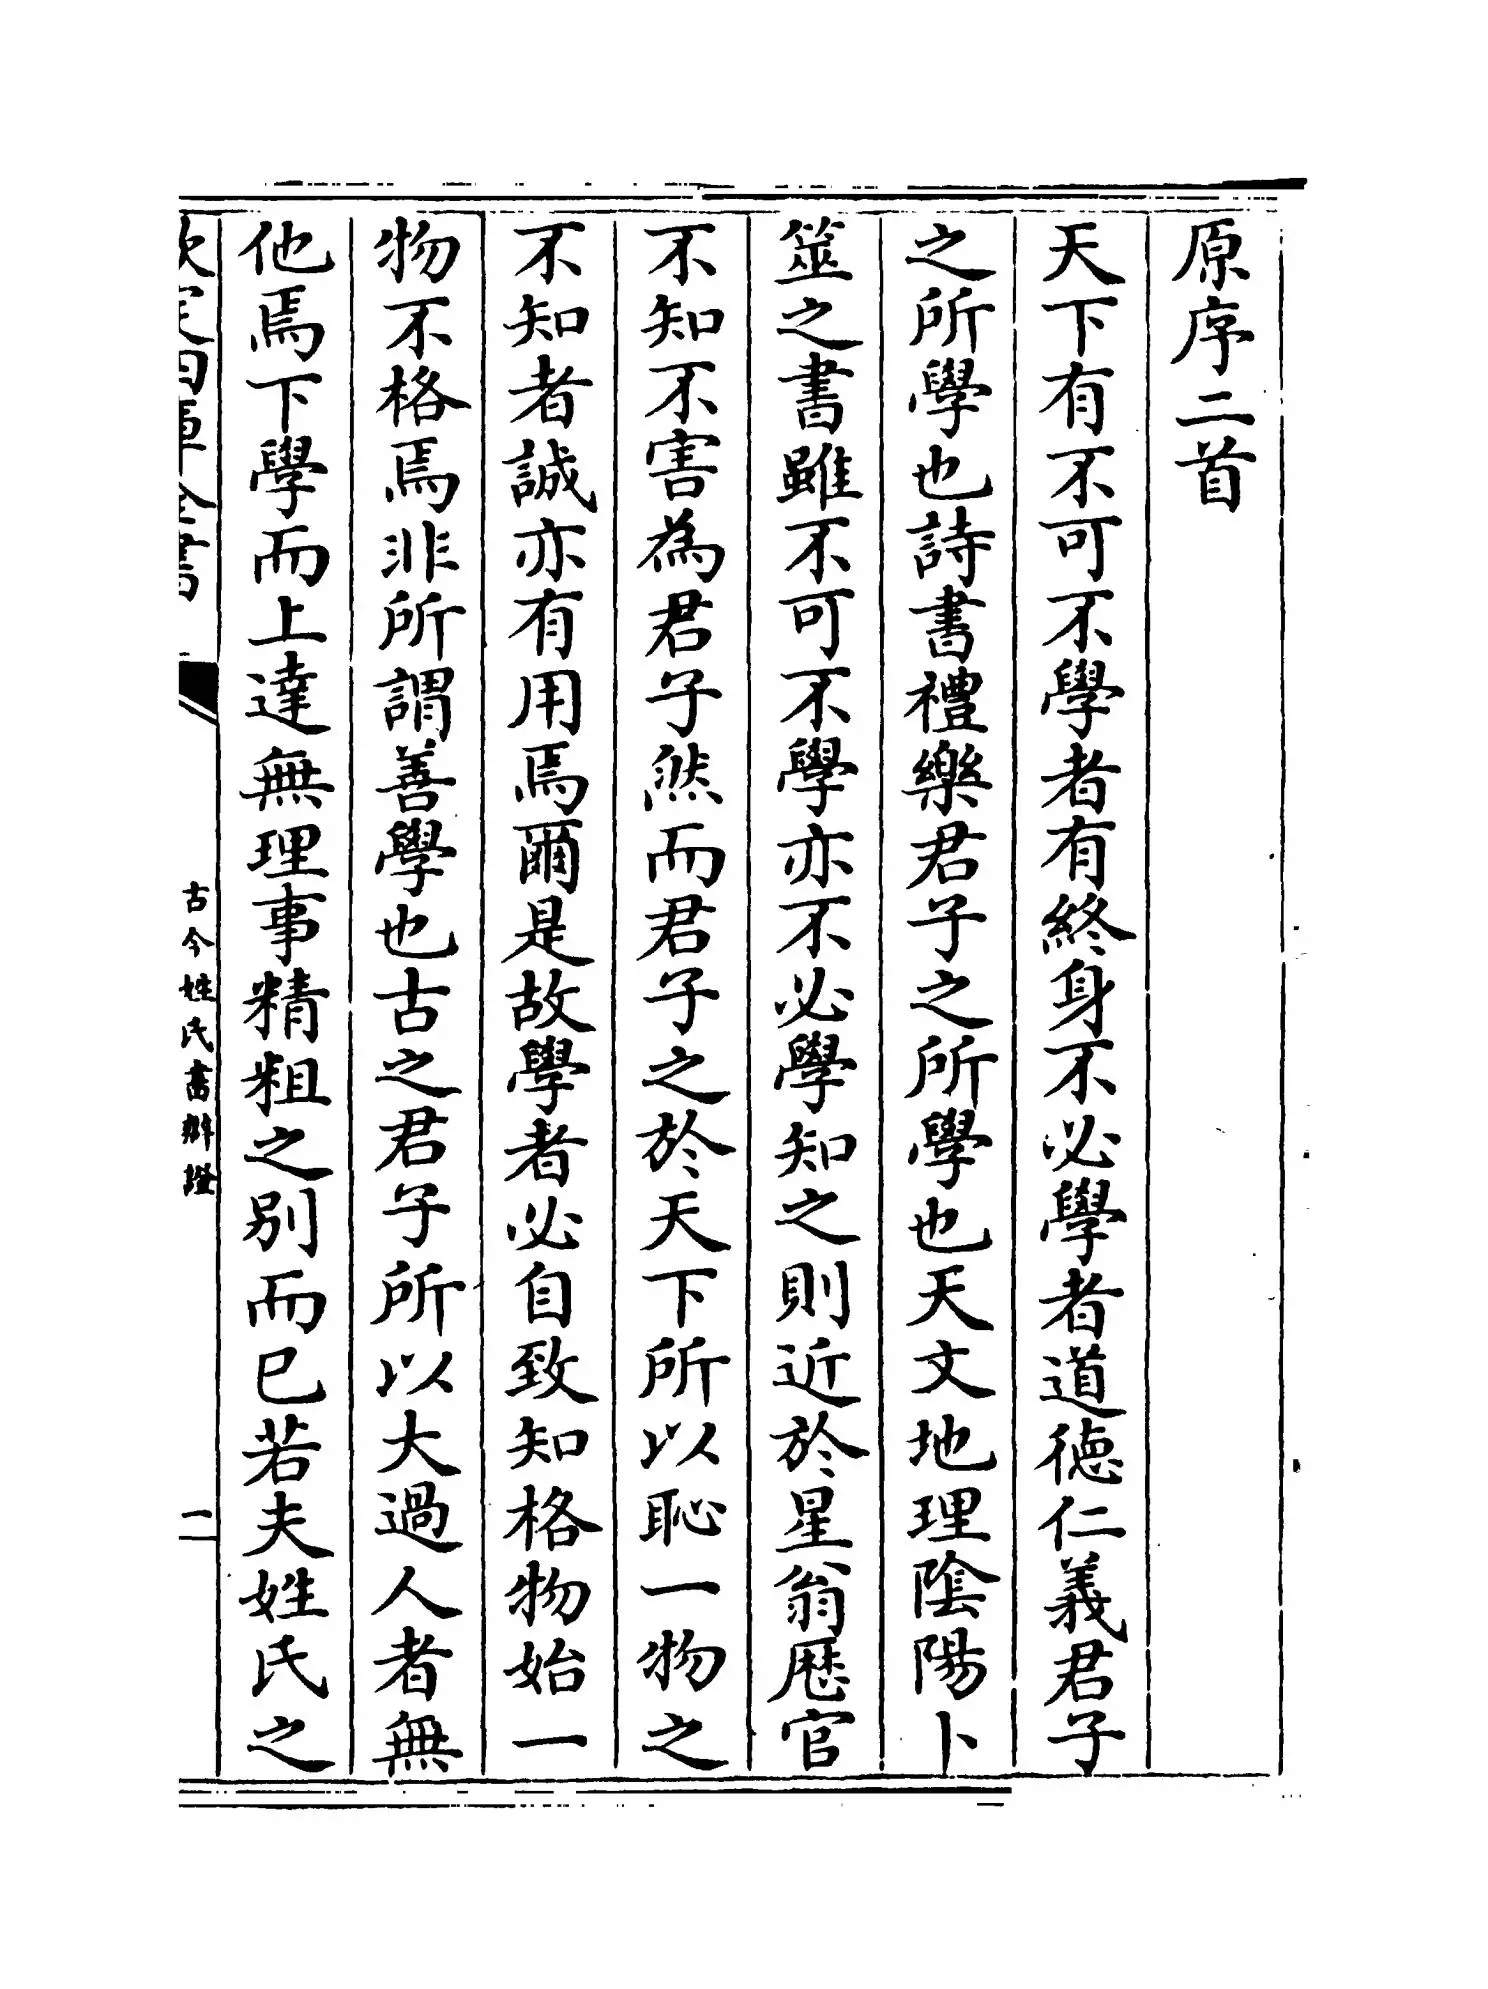 原序二首
天下有不可不學者有終身不必學者道徳仁義君子
之所學也詩書禮樂君子之所學也天文地理隂陽卜
筮之書雖不可不學亦不必學知之則近於星翁厯官
不知不害為君子然而君子之於天下所以恥一物之
不知者誠亦有用焉爾是故學者必自致知格物始一
物不格焉非所謂善學也古之君子所以大過人者無
他焉下學而上達無理事精粗之别而已若夫姓氏之
欽定四庫全書
古今姓氏書辯證
二